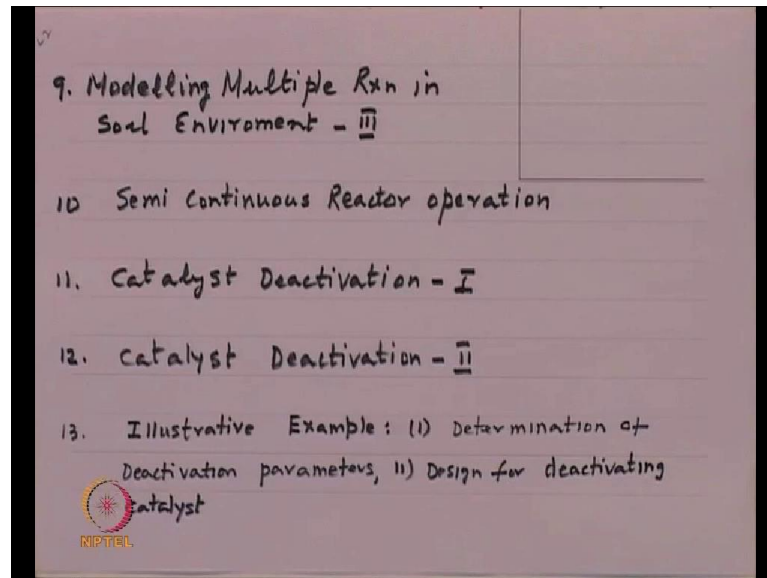 9. Modelling Multiple Rxn in
Soal Enviroment - III
10 Semi Continuous Reactor operation
11. Catalyst Deactivation - I
12. Catalyst Deactivation - II
13. Illustrative Example: (1) Determination of
Deactivation parameters, 11) Design for deactivating
catalyst
NPTEL